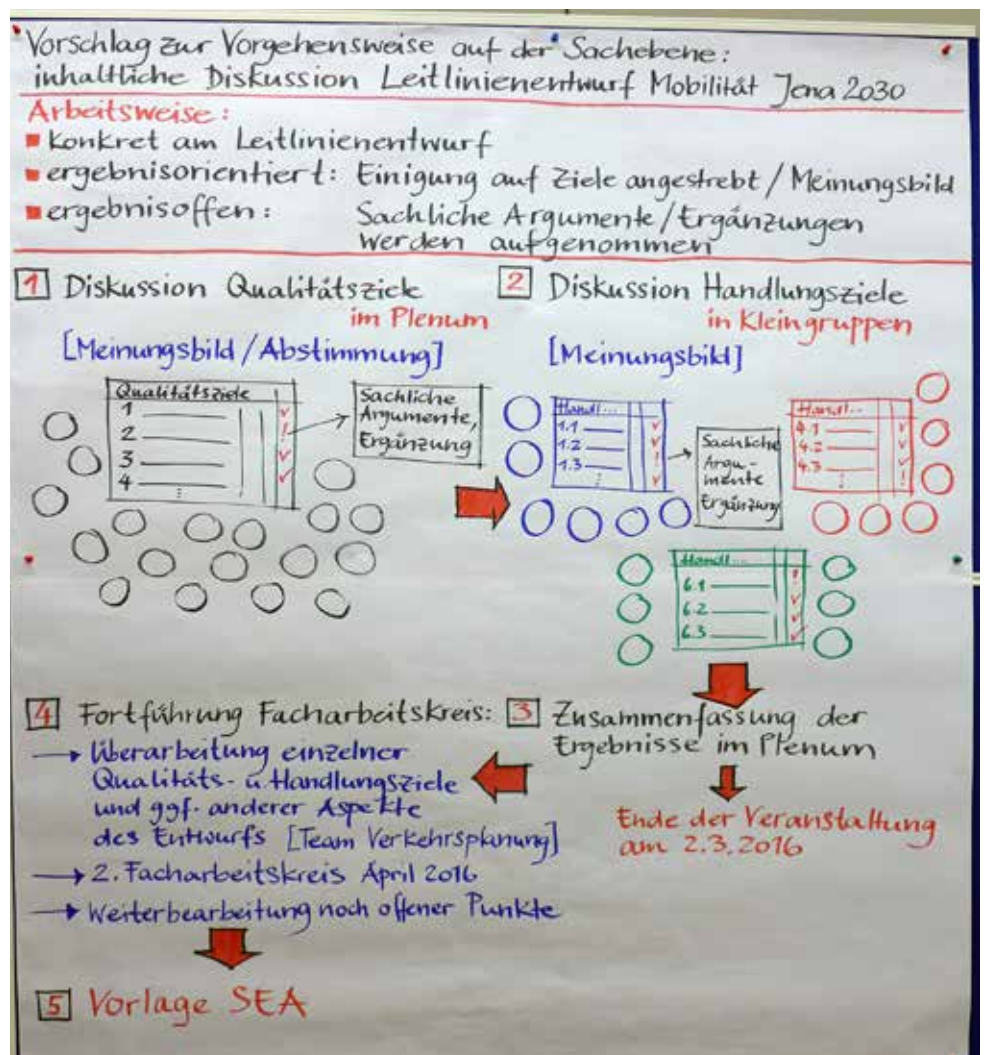 Vorschlag zur Vorgehensweise auf der Sachebene:
inhaltliche Diskussion Leitlinienentwurf Mobilität Jena 2030
Arbeitsweise:
konkret am Leitlinienentwurf
ergebnisorientiert: Einigung auf Ziele angestrebt / Meinungsbild
ergebnisoffen: Sachliche Argumente / Ergänzungen
werden aufgenommen
1 Diskussion Qualitätsziele
im Plenum
[Meinungsbild / Abstimmung]
Qualitätsziele
1
2
3
4
Sachliche
Argumente,
Ergänzung
2 Diskussion Handlungsziele
in Kleingruppen
[Meinungsbild]
Handl...
1.1
1.2
1.3
Sachliche
Argu-
mente
Ergänzung
Handl...
4.1
4.2
4.3
Handl...
6.1
6.2
6.3
3 Zusammenfassung der
Ergebnisse im Plenum
Ende der Veranstaltung
am 2.3.2016
4 Fortführung Facharbeitskreis:
→ Überarbeitung einzelner
Qualitäts- u. Handlungsziele
und ggf. anderer Aspekte
des Entwurfs [Team Verkehrsplanung]
→ 2. Facharbeitskreis April 2016
→ Weiterbearbeitung noch offener Punkte
5 Vorlage SEA